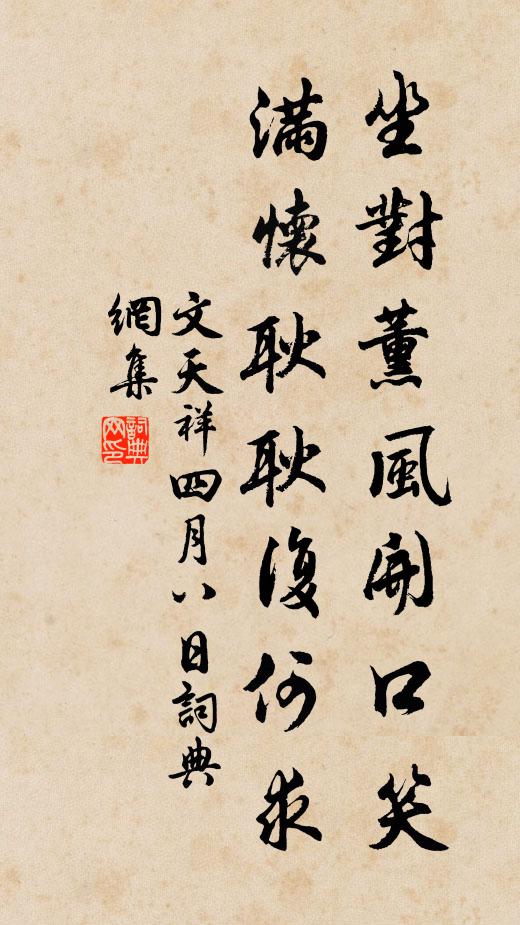 坐對薰風開口笑
滿懷耿耿復何求
文天祥四月八日詞典
網集
詞典網印